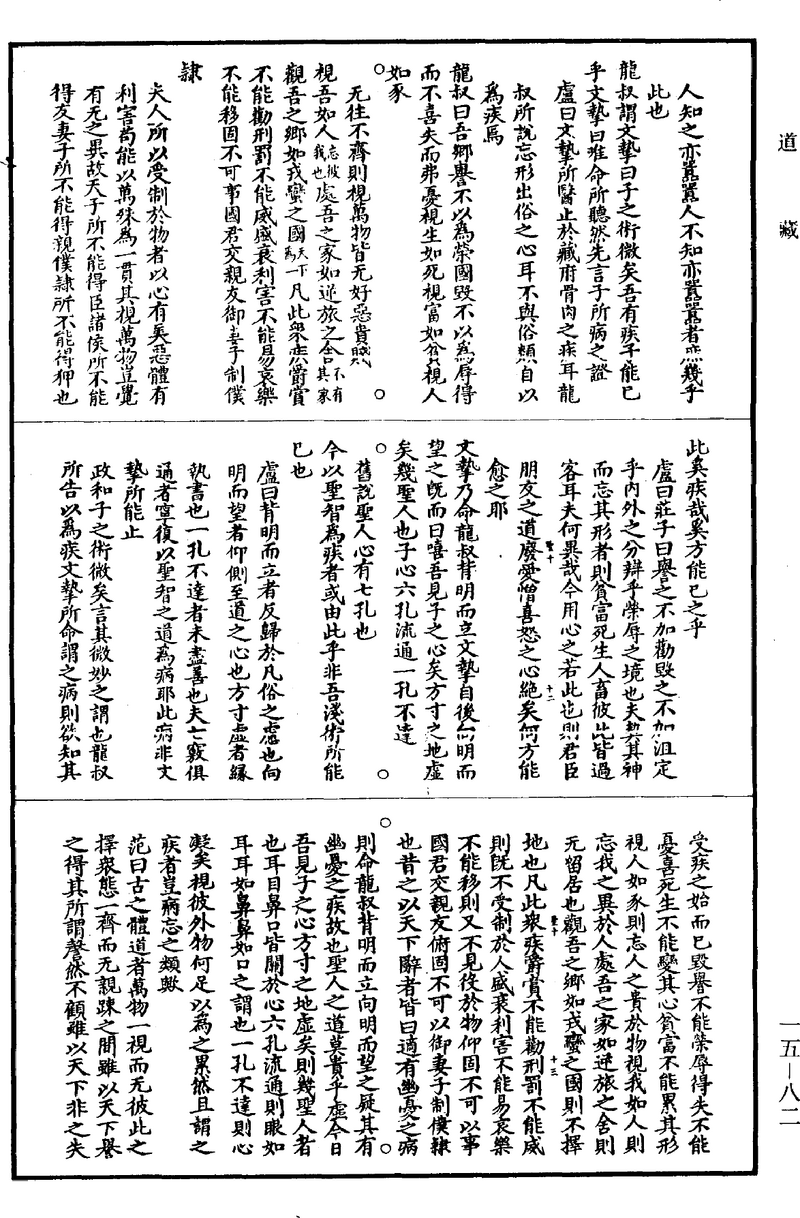 道藏
人知之亦囂囂人不知亦囂囂者庶幾乎
此也
龍叔謂文摯曰子之術微矣吾有疾子能已
乎文摯曰唯命所聽然先言子所病之證
盧曰文摯所醫止於藏府骨肉之疾耳龍
叔所說忘形出俗之心耳不與俗類自以
為疾焉
龍叔曰吾鄉譽不以為榮國毀不以為辱得
而不喜失而弗憂視生如死視富如貧視人
如豕
无往不齊則視萬物皆无好惡貴賤
視吾如人忘彼我也處吾之家如逆旅之舍不有其家
觀吾之鄉如戎蠻之國天下為一凡此衆疾爵賞
不能勸刑罰不能威盛衰利害不能易哀樂
不能移固不可事國君交親友御妻子制僕
隸
夫人所以受制於物者以心有美惡體有
利害苟能以萬殊為一貫其視萬物豈覺
有无之異故天子所不能得臣諸侯所不能
得友妻子所不能得親僕隸所不能得狎也
此奚疾哉奚方能已之乎
盧曰莊子曰舉世譽之不加勸毀之不加沮定
乎內外之分辯乎榮辱之境也夫契其神
而忘其形者則貧富死生人畜彼此皆過
客耳夫何異哉今用心之若此也則君臣
朋友之道廢愛憎喜怒之心絕矣何方能
愈之耶
聖十
十二
文摯乃命龍叔背明而立文摯自後向明而
望之旣而曰嘻吾見子之心矣方寸之地虛
矣幾聖人也子心六孔流通一孔不達
舊說聖人心有七孔也
今以聖智為疾者或由此乎非吾淺術所能
已也
盧曰背明而立者反歸於凡俗之慮也向
明而望者仰側至道之心也方寸虛者緣
執書也一孔不達者未盡善也夫七竅俱
通者寧復以聖智之道為病耶此病非文
摯所能止
政和子之術微矣言其微妙之謂也龍叔
所告以為疾文摯所命謂之病則欲知其
受疾之始而已毀譽不能榮辱得失不能
憂喜死生不能變其心貧富不能累其形
視人如豕則忘人之貴於物視我如人則
忘我之異於人處吾之家如逆旅之舍則
无留居也觀吾之鄉如戎蠻之國則不擇
聖十
十三
地也凡此衆疾爵賞不能勸刑罰不能威
則旣不受制於人盛衰利害不能易哀樂
不能移則又不見役於物仰固不可以事
國君交親友俯固不可以御妻子制僕隸
也昔之以天下辭者皆曰適有幽憂之病
則命龍叔背明而立向明而望之疑其有
幽憂之疾故也聖人之道莫貴乎虛今日
吾見子之心方寸之地虛矣則幾聖人者
也耳目鼻口皆關於心六孔流通則眼如
耳耳如鼻鼻如口之謂也一孔不達則心
凝矣視彼外物何足以為之累然且謂之
疾者豈病忘之類歟
范曰古之體道者萬物一視而无彼此之
擇衆態一齊而无親踈之間雖以天下譽
之得其所謂謷然不顧雖以天下非之失
一五－八二